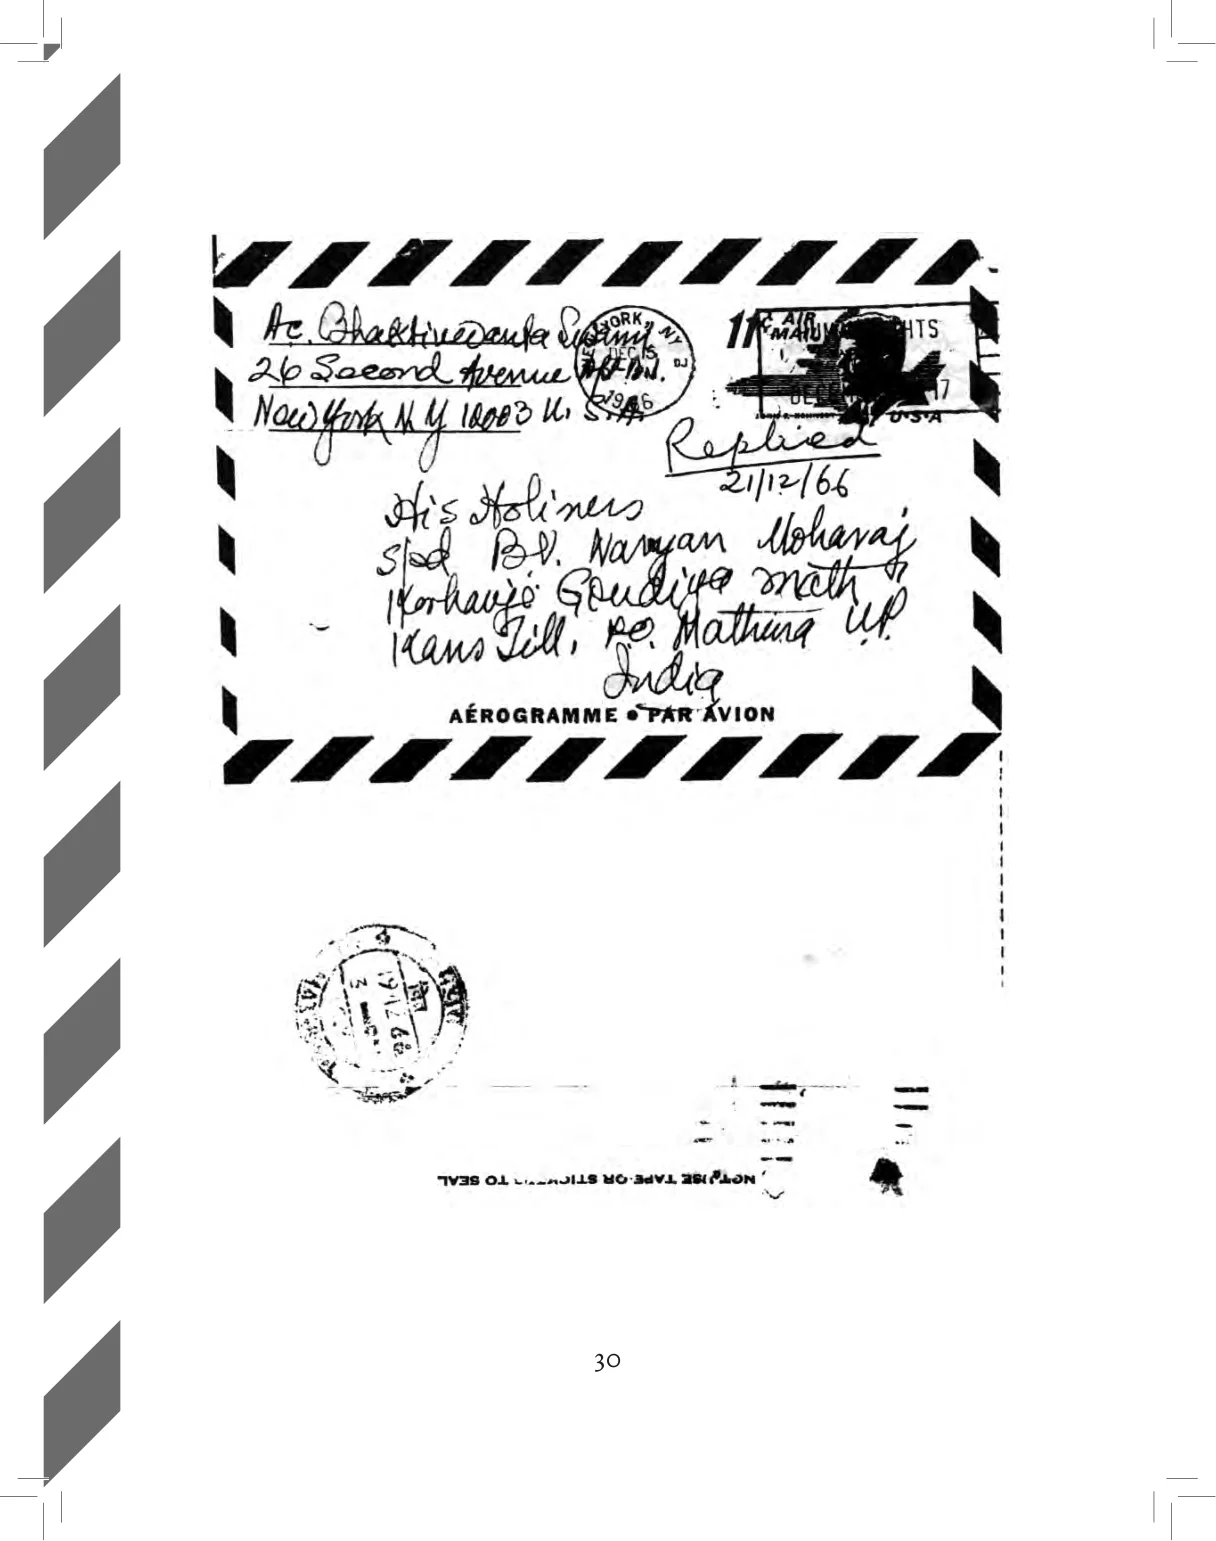 Ac. Bhaktivedanta Swami
26 Second Avenue Apt B.I.
New York N Y 10003 U. S. A.
YORK, NY
DEC 15
1966
11c AIR MAIL
U·S·A
17
Replied
21/12/66
His Holiness
Sripad B.V. Narayan Moharaj
Keshavji Goudiya math
Kans Till, P.O. Mathura U.P.
India
AÉROGRAMME • PAR AVION
19 12 66
NOT USE TAPE OR STICKERS TO SEAL
30